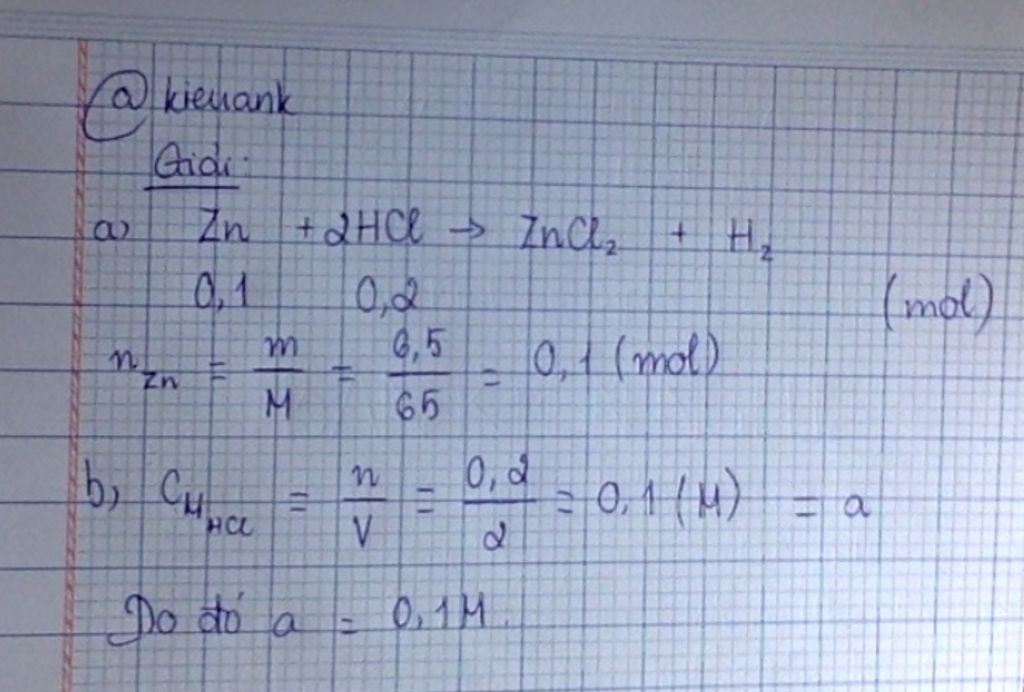 @ kieuank
Giải:
a) Zn + 2HCl → ZnCl₂ + H₂
0,1 0,2 (mol)
n_Zn = m/M = 6,5/65 = 0,1 (mol)
b) C_M_HCl = n/V = 0,2/2 = 0,1 (M) = a
Do đó a = 0,1M.